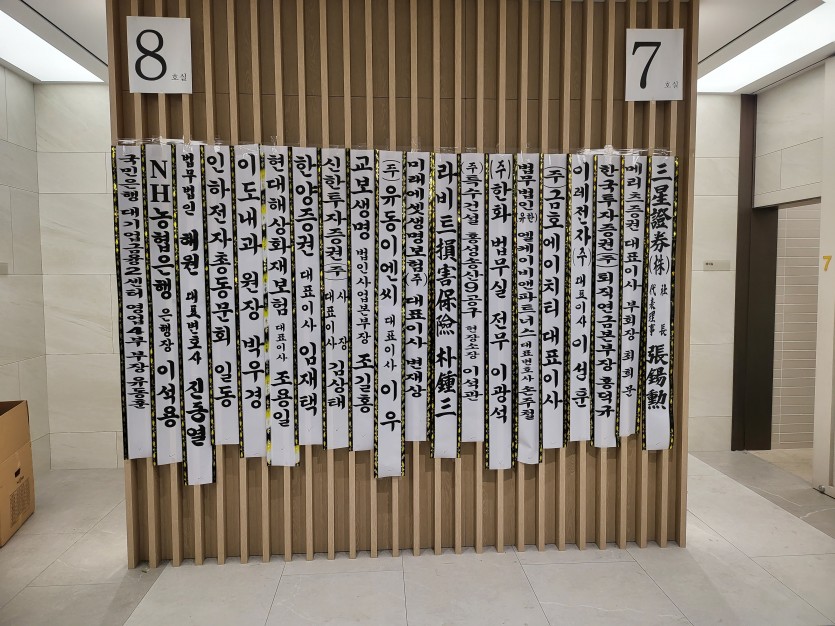 8 호실
7 호실
국민은행 대기업금융2센터 영업4부 부장 유동훈
NH농협은행 은행장 이석용
법무법인 해원 대표변호사 진충열
인하전자총동문회 일동
이도내과 원장 박우경
현대해상화재보험 대표이사 조용일
한양증권 대표이사 임재택
신한투자증권(주) 대표이사 사장 김상태
교보생명 법인사업본부장 조길홍
(주)유동이엔씨 대표이사 이우
미래에셋생명보험(주) 대표이사 변재상
라비트損害保險 朴鍾三
(주)특수건설 홍성송산9공구 현장소장 이석관
(주)한화 법무실 전무 이광석
법무법인(유한) 엘케이비앤파트너스 대표변호사 손주철
(주)금호에이치티 대표이사
이레전자(주) 대표이사 이섭훈
한국투자증권(주) 퇴직연금본부장 홍덕규
메리츠증권 대표이사 부회장 최희문
三星證券(株) 代表理事 社長 張錫勳
7